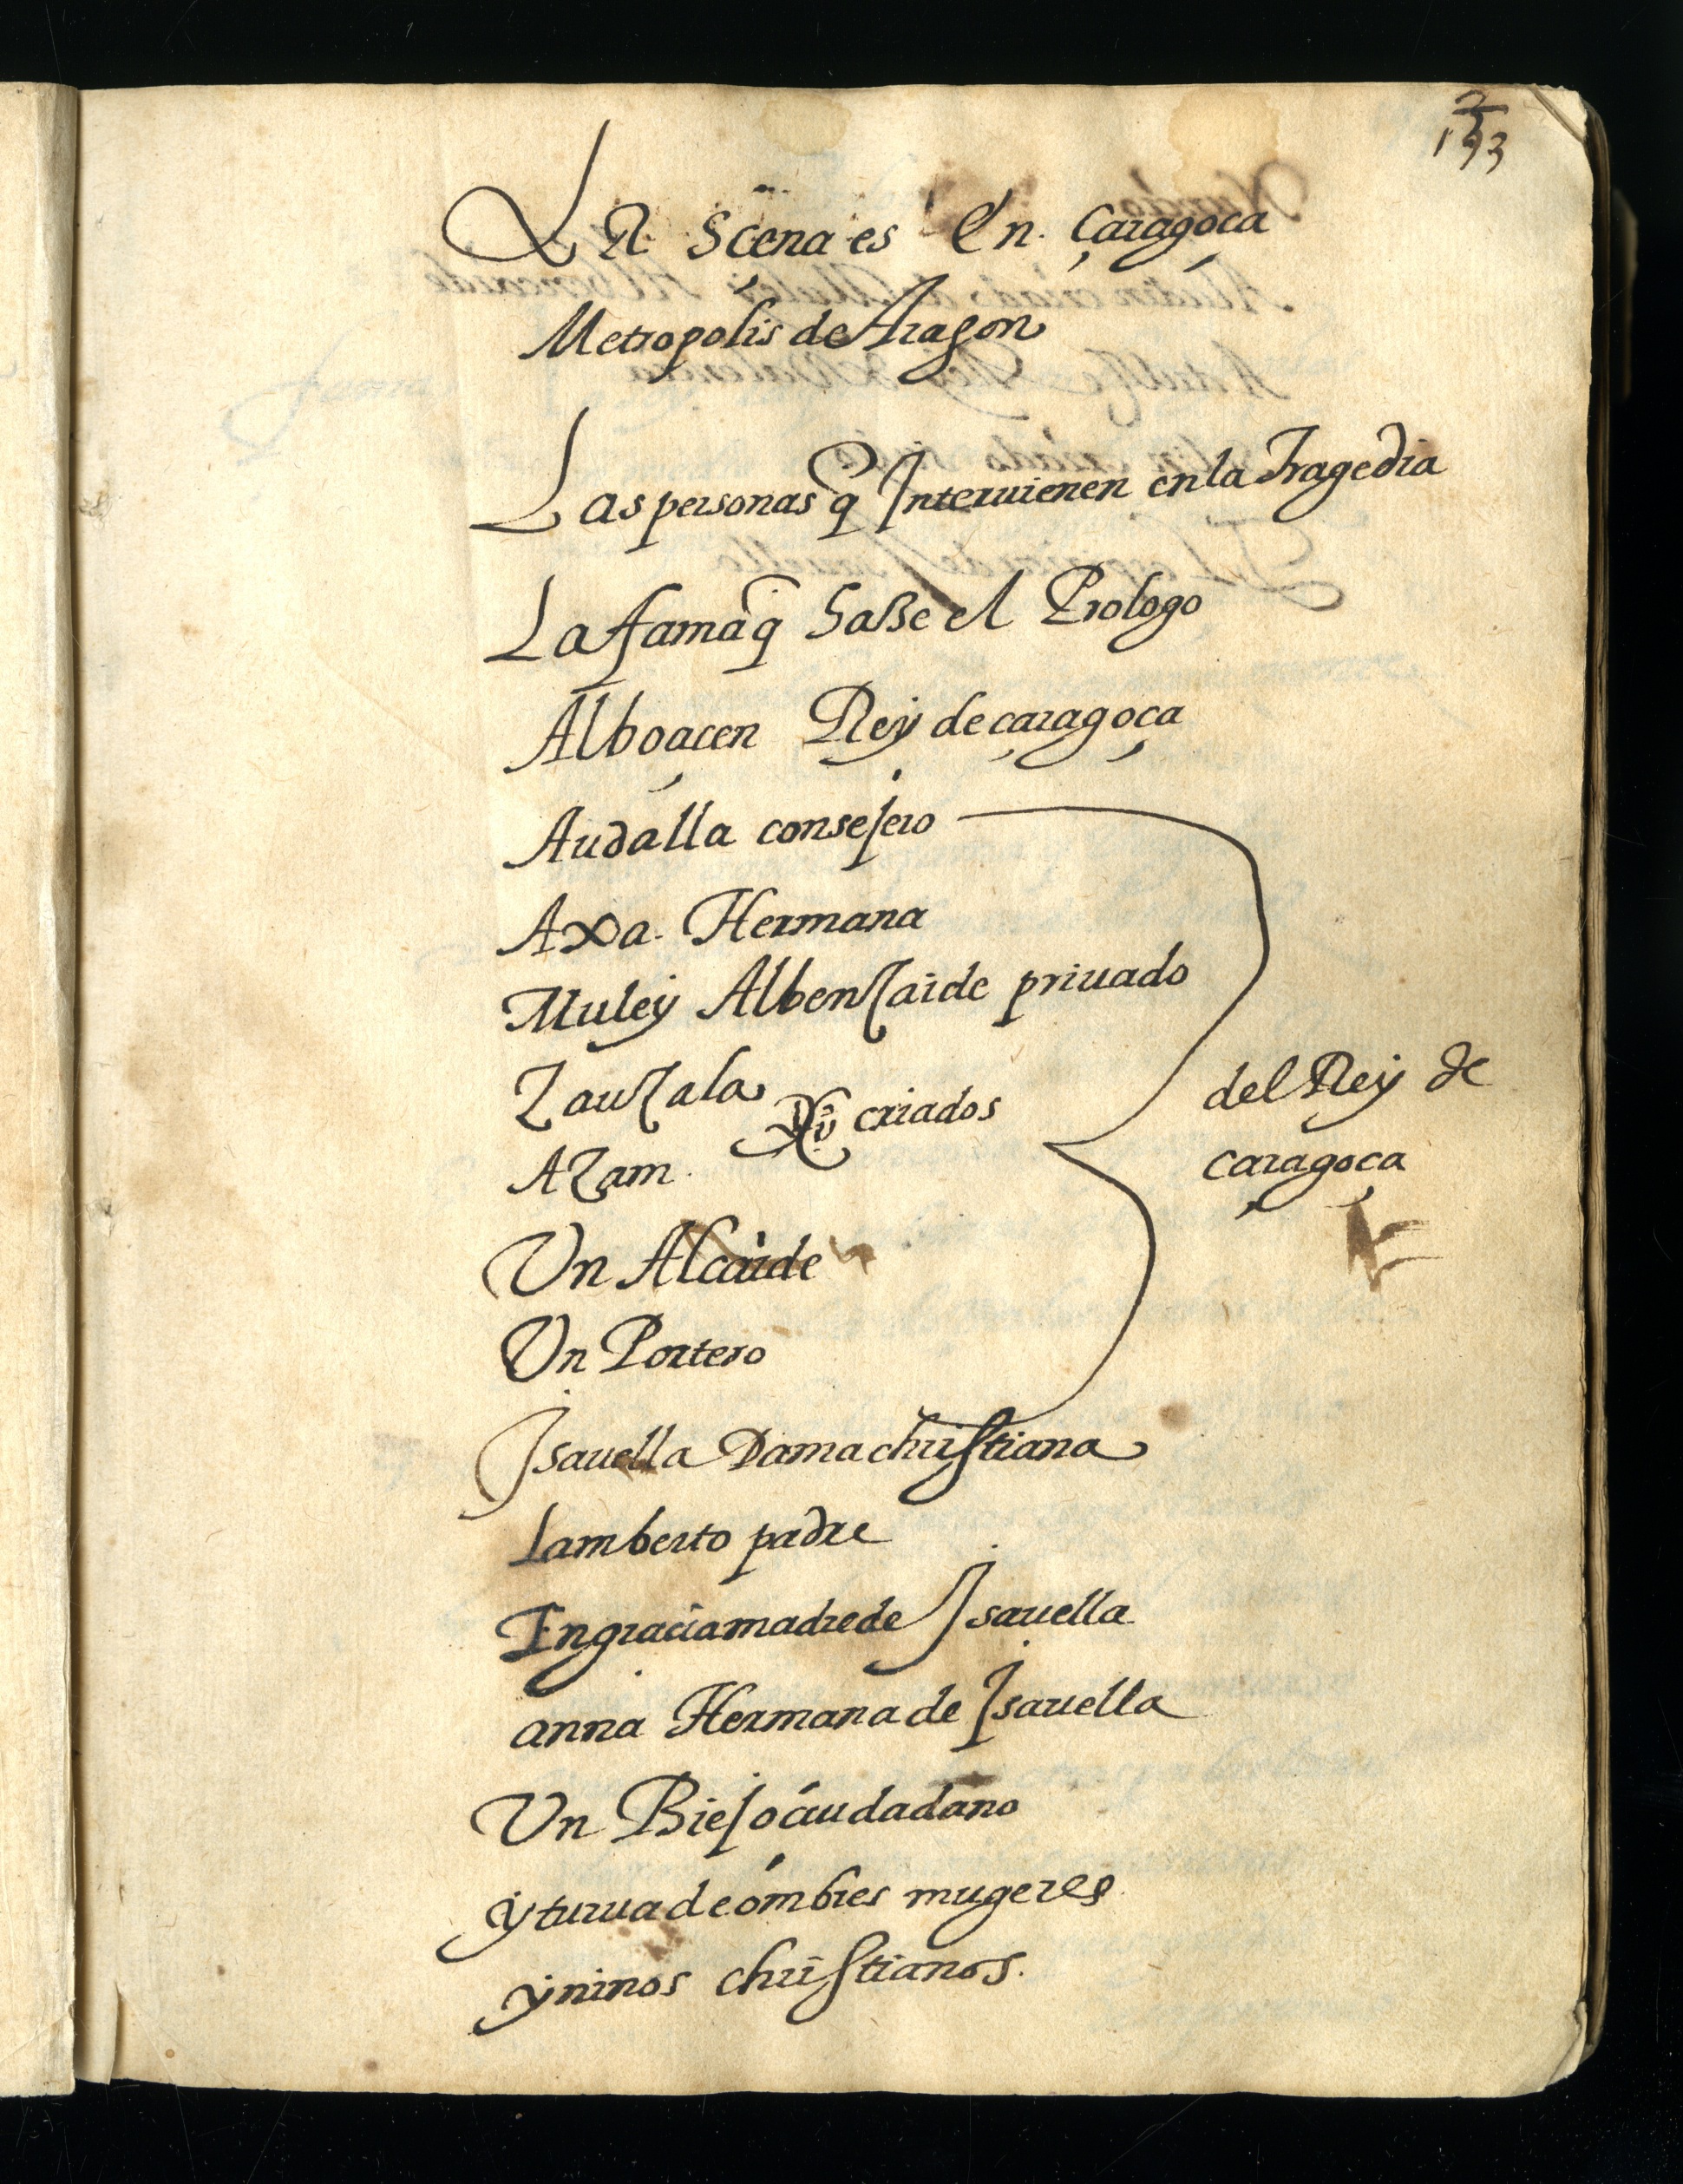 LA Scena es En. Çaragoça
Metropolis de Aragon
Las personas q̃ Interuienen en la Tragedia
La fama q̃ haze el Prologo
Alboaçen Rey de çaragoça
Audalla consejero
Axa. Hermana
Muley Albenzaide priuado
Zauzala
criados
Azam.
del Rey de
çaragoça
Un Alcaide
Un Portero
Isauella Dama christiana
Lamberto padre
Engracia madre de Isauella
anna Hermana de Isauella
Un Biejo ciudadano
y turua de ombres mugeres
y ninos christianos.